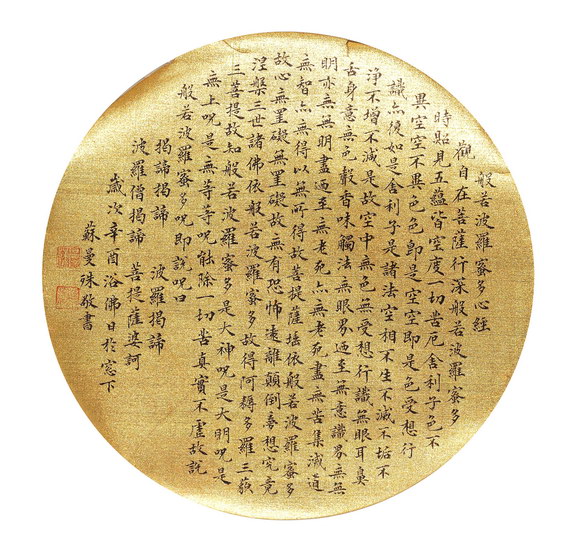 般若波羅蜜多心經
觀自在菩薩行深般若波羅蜜多
時照見五蘊皆空度一切苦厄舍利子色不
異空空不異色色即是空空即是色受想行
識亦復如是舍利子是諸法空相不生不滅不垢不
淨不增不減是故空中無色無受想行識無眼耳鼻
舌身意無色聲香味觸法無眼界迺至無意識界無無
明亦無無明盡迺至無老死亦無老死盡無苦集滅道
無智亦無得以無所得故菩提薩埵依般若波羅蜜多
故心無罣礙無罣礙故無有恐怖遠離顛倒夢想究竟
涅槃三世諸佛依般若波羅蜜多故得阿耨多羅三藐
三菩提故知般若波羅蜜多是大神呪是大明呪是
無上呪是無等等呪能除一切苦真實不虛故說
般若波羅蜜多呪即說呪曰
揭諦揭諦 波羅揭諦
波羅僧揭諦 菩提薩婆訶
歲次辛酉浴佛日於窓下
蘇曼殊敬書